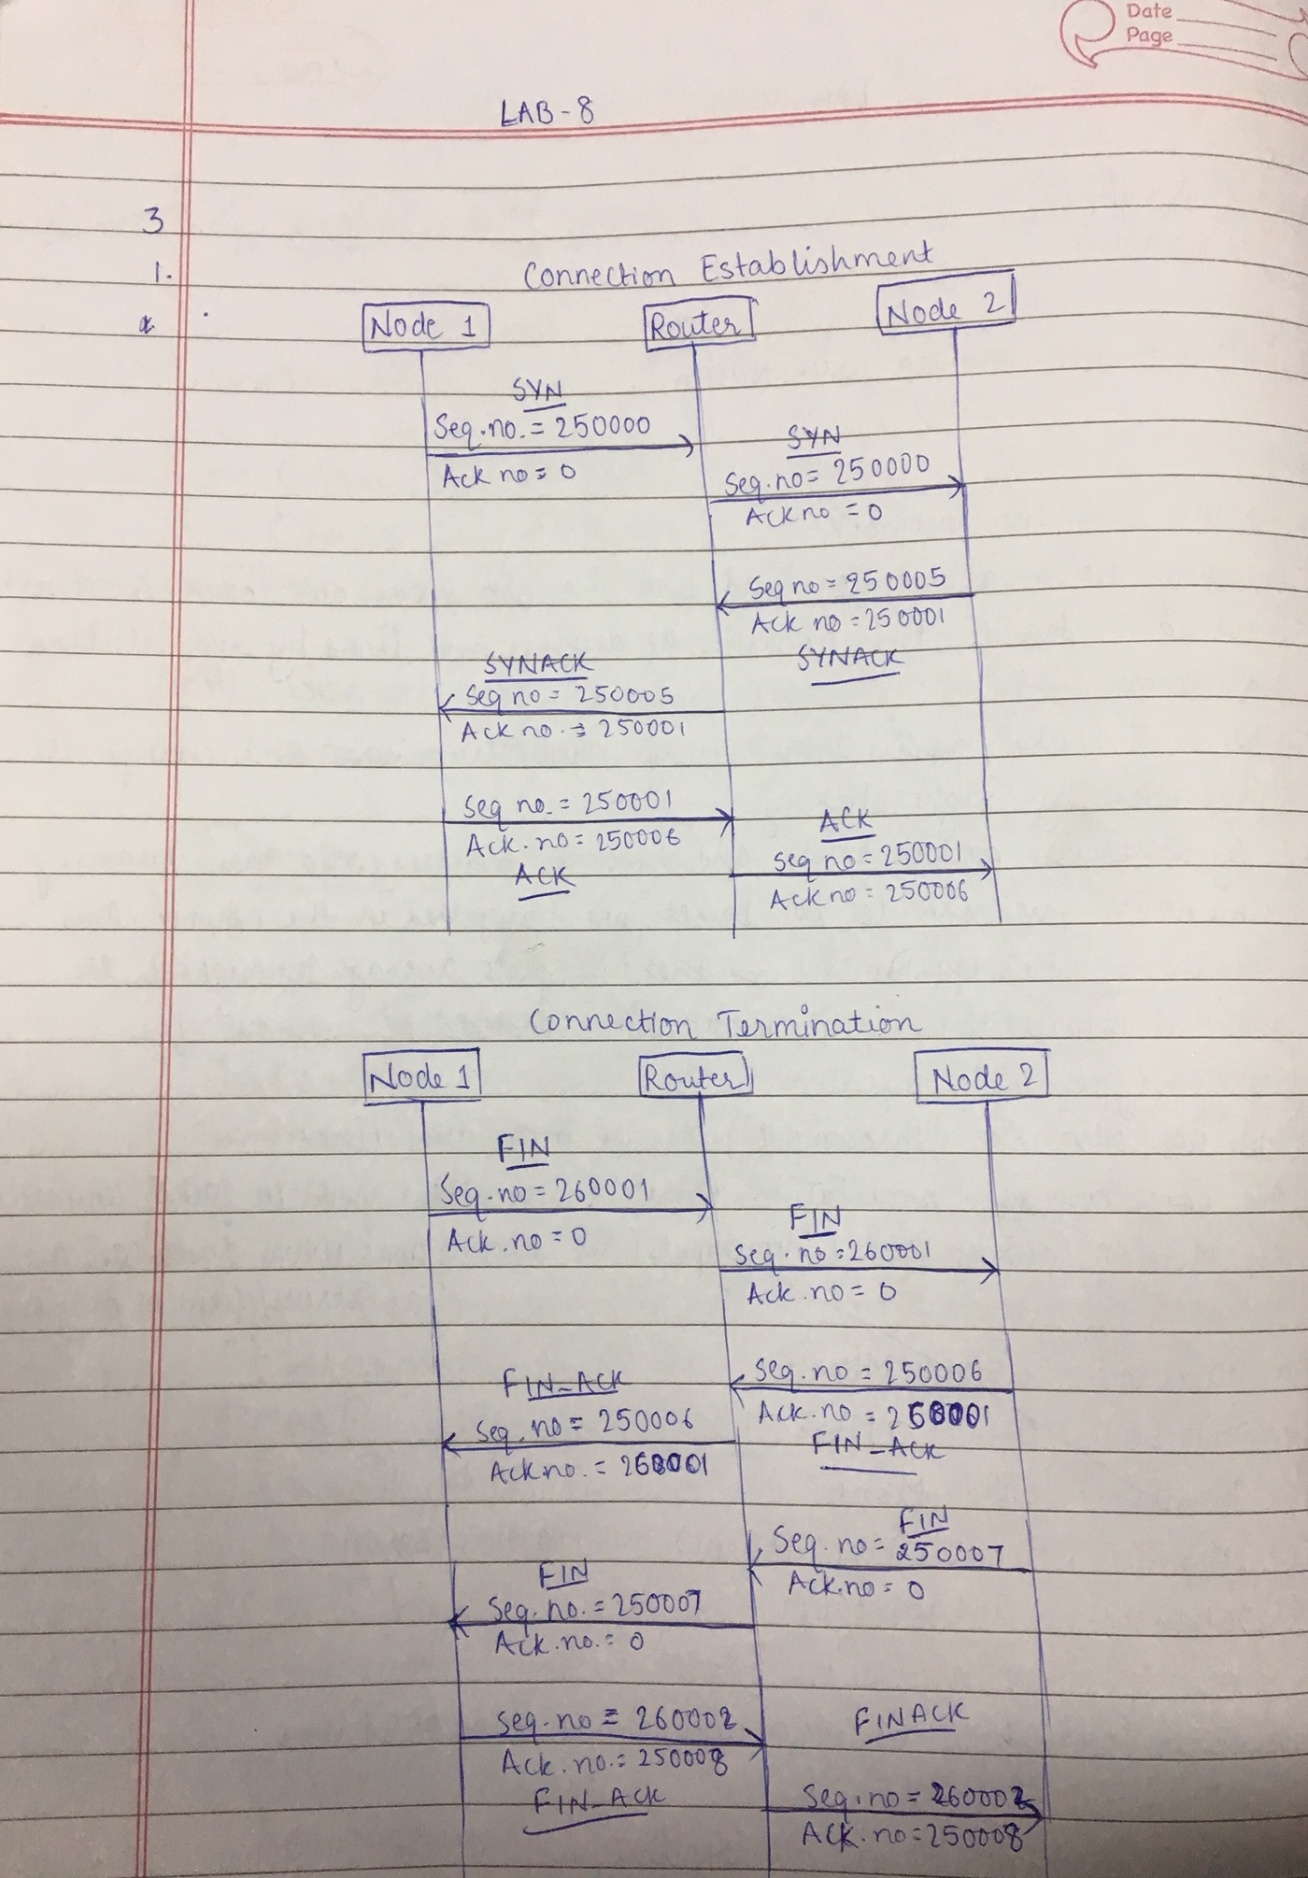 Date
Page
LAB-8
3
1.
Connection Establishment
Node 1
Router
Node 2
SYN
Seq.no. = 250000
Ack no = 0
SYN
Seq.no = 250000
Ack no = 0
Seq no = 250005
Ack no = 250001
SYNACK
SYNACK
Seq no = 250005
Ack no. = 250001
Seq no. = 250001
Ack.no = 250006
ACK
ACK
Seq no = 250001
Ack no = 250006
Connection Termination
Node 1
Router
Node 2
FIN
Seq.no = 260001
Ack.no = 0
FIN
Seq.no = 260001
Ack.no = 0
Seq.no = 250006
Ack.no = 260001
FIN_ACK
FIN_ACK
Seq.no = 250006
Ack no. = 260001
FIN
Seq.no = 250007
Ack.no = 0
FIN
Seq.no. = 250007
Ack.no. = 0
Seq.no = 260002
Ack.no. = 250008
FIN_ACK
FINACK
Seq.no = 260002
Ack.no = 250008